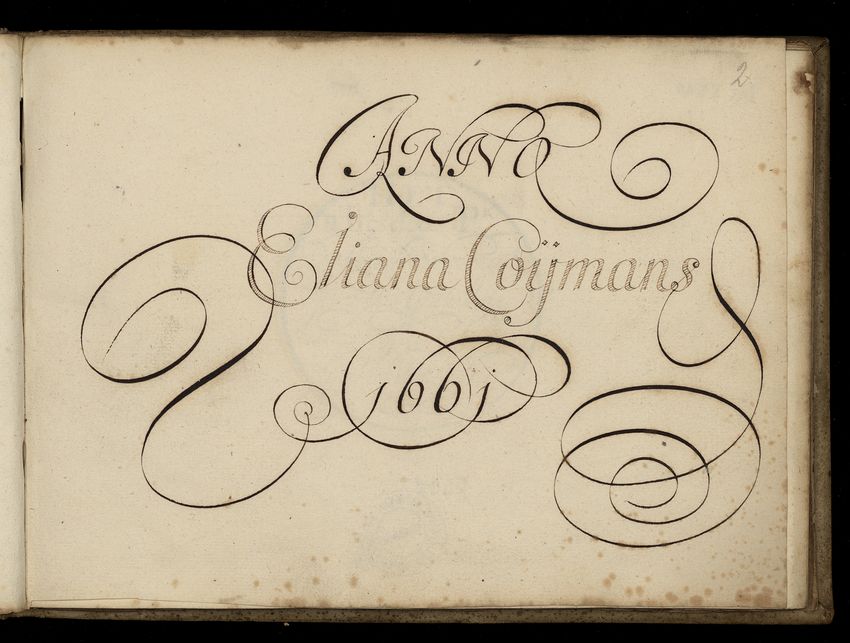 2
ANNO
Eliana Coÿmans
1661